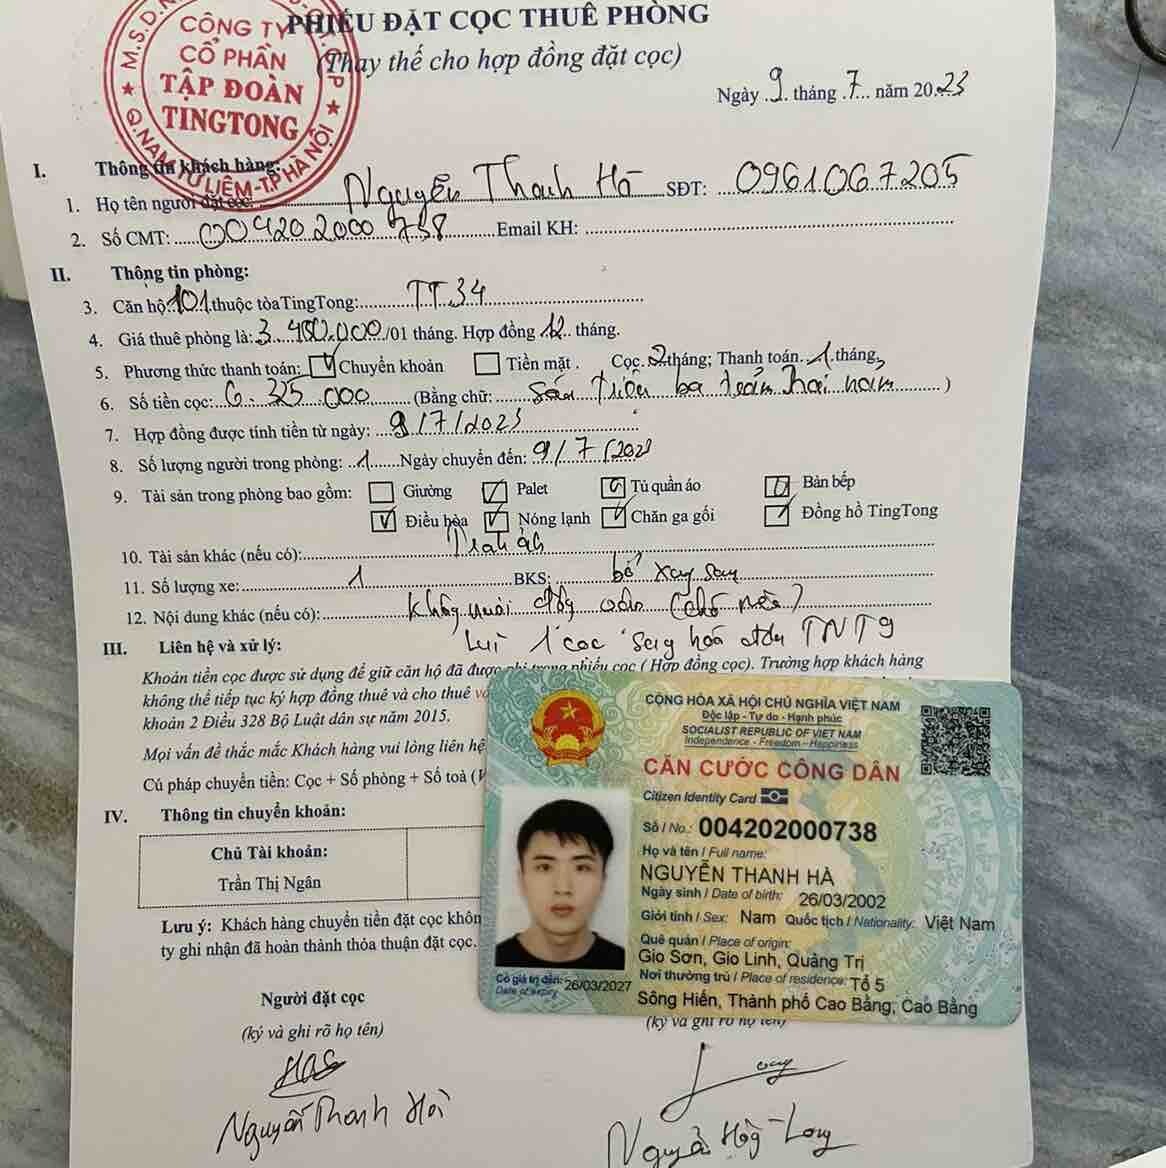 M.S.D.N
CÔNG TY
CỔ PHẦN
TẬP ĐOÀN
TINGTONG
Q.NAM TỪ LIÊM-T.P HÀ NỘI
PHIẾU ĐẶT CỌC THUÊ PHÒNG
(Thay thế cho hợp đồng đặt cọc)
Ngày 9 tháng 7 năm 2023
I. Thông tin khách hàng:
1. Họ tên người đặt cọc: Nguyễn Thanh Hà SĐT: 0961067205
2. Số CMT: 004202000738 Email KH:
II. Thông tin phòng:
3. Căn hộ: 101 thuộc tòa TingTong: TT34
4. Giá thuê phòng là: 3.400.000/01 tháng. Hợp đồng 12 tháng.
5. Phương thức thanh toán: Chuyển khoản Tiền mặt. Cọc 2 tháng; Thanh toán 1 tháng,
6. Số tiền cọc: 6.325.000 (Bằng chữ: sáu triệu ba trăm hai năm)
7. Hợp đồng được tính tiền từ ngày: 9/7/2023
8. Số lượng người trong phòng: 1 Ngày chuyển đến: 9/7/2023
9. Tài sản trong phòng bao gồm: Giường Palet Tủ quần áo Bàn bếp
Điều hòa Nóng lạnh Chăn ga gối Đồng hồ TingTong
10. Tài sản khác (nếu có):
11. Số lượng xe: 1 BKS:
12. Nội dung khác (nếu có): Không nuôi động vật (chó mèo)
1 cọc sang hóa đơn TNT9
III. Liên hệ và xử lý:
Khoản tiền cọc được sử dụng để giữ căn hộ đã được ghi trong phiếu cọc ( Hợp đồng cọc). Trường hợp khách hàng
không thể tiếp tục ký hợp đồng thuê và cho thuê
khoản 2 Điều 328 Bộ Luật dân sự năm 2015.
Mọi vấn đề thắc mắc Khách hàng vui lòng liên hệ
Cú pháp chuyển tiền: Cọc + Số phòng + Số toà
IV. Thông tin chuyển khoản:
Chủ Tài khoản:
Trần Thị Ngân
Lưu ý: Khách hàng chuyển tiền đặt cọc khôn
ty ghi nhận đã hoàn thành thỏa thuận đặt cọc.
Người đặt cọc
(ký và ghi rõ họ tên)
Nguyễn Thanh Hà
(ký và ghi rõ họ tên)
Nguyễn Hoàng Long
CỘNG HÒA XÃ HỘI CHỦ NGHĨA VIỆT NAM
Độc lập - Tự do - Hạnh phúc
SOCIALIST REPUBLIC OF VIET NAM
Independence - Freedom - Happiness
CĂN CƯỚC CÔNG DÂN
Citizen Identity Card
Số / No.: 004202000738
Họ và tên / Full name:
NGUYỄN THANH HÀ
Ngày sinh / Date of birth: 26/03/2002
Giới tính / Sex: Nam Quốc tịch / Nationality: Việt Nam
Quê quán / Place of origin:
Gio Sơn, Gio Linh, Quảng Trị
Nơi thường trú / Place of residence: Tổ 5
Sông Hiến, Thành phố Cao Bằng, Cao Bằng
Có giá trị đến: 26/03/2027
Date of expiry